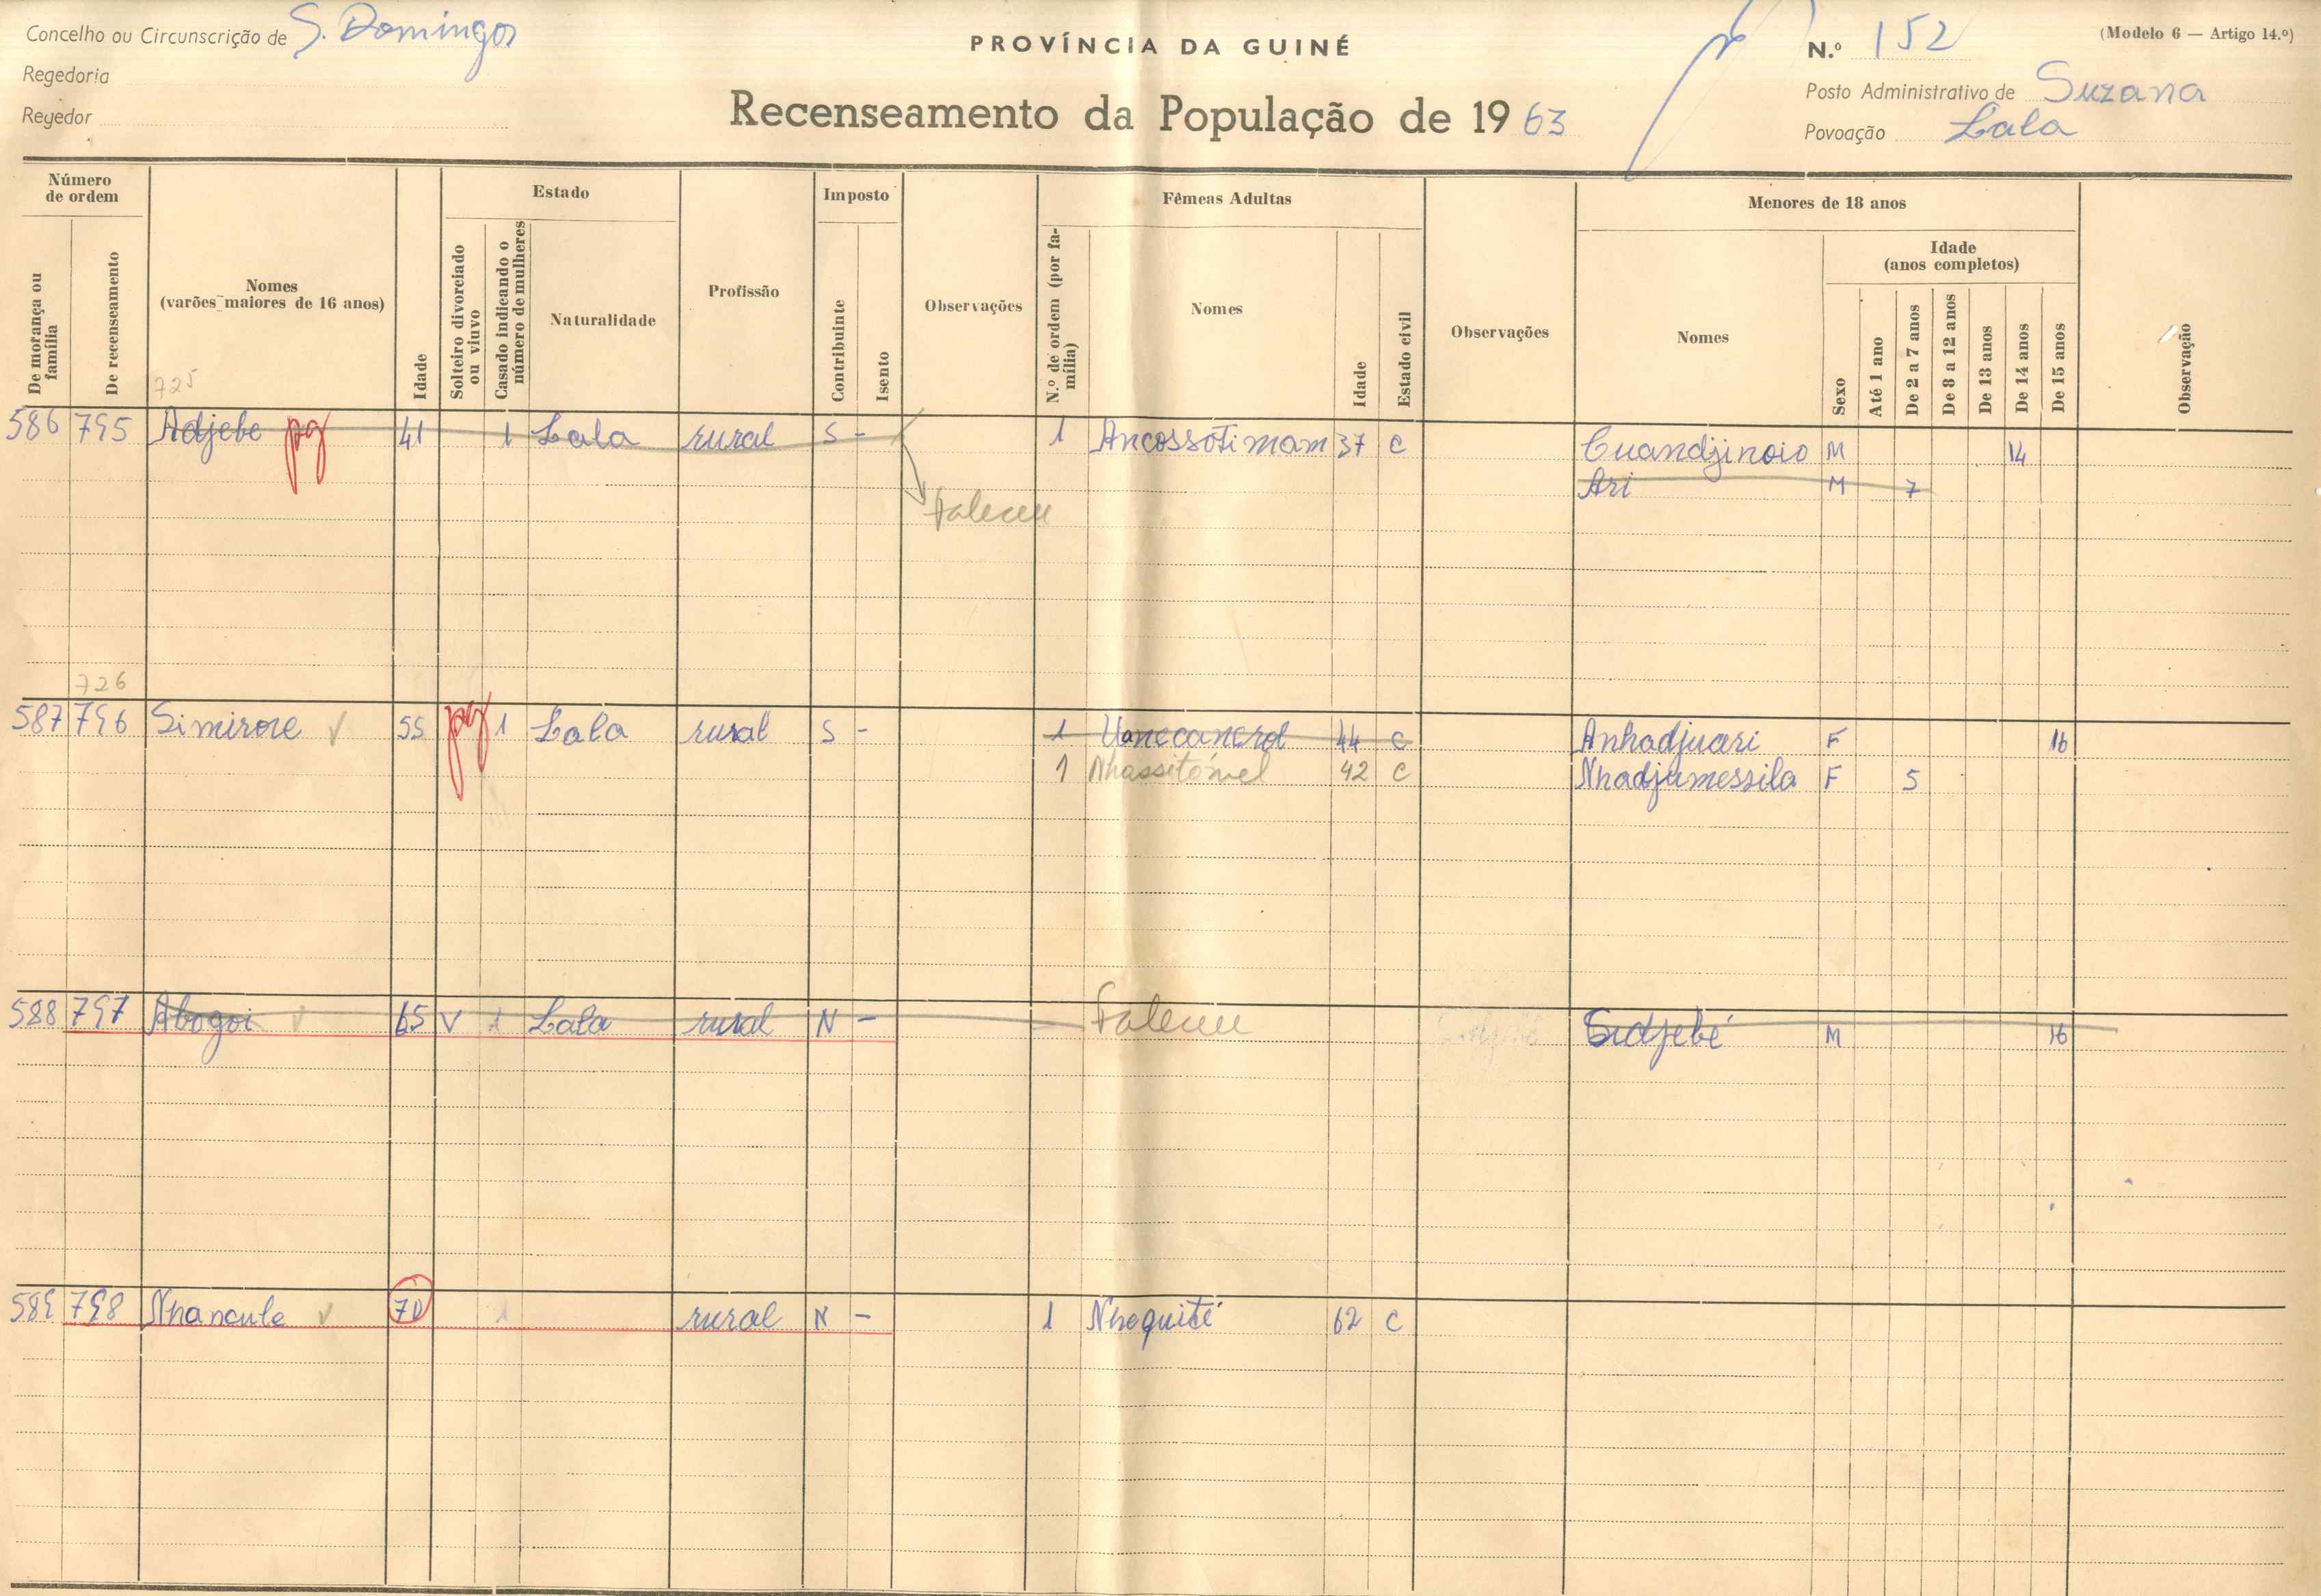 Concelho ou Circunscrição de S. Domingos
PROVÍNCIA DA GUINÉ
N.º 152
(Modelo 6 — Artigo 14.º)
Regedoria
Posto Administrativo de Suzana
Regedor
Recenseamento da População de 19 63
Povoação Lala
Número de ordem
De morança ou família
De recenseamento
Nomes
(varões maiores de 16 anos)
Idade
Estado
Solteiro divorciado ou viuvo
Casado indicando o número de mulheres
Naturalidade
Profissão
Imposto
Contribuinte
Isento
Observações
Fêmeas Adultas
N.º de ordem (por família)
Nomes
Idade
Estado civil
Observações
Menores de 18 anos
Nomes
Sexo
Idade
(anos completos)
Até 1 ano
De 2 a 7 anos
De 8 a 12 anos
De 13 anos
De 14 anos
De 15 anos
Observação
725
586 795 Adjebe pg 41 1 Lala rural S - 1 Ancossotimam 37 C Cuandjinoio M 14
Ari M 7
Faleceu
726
587 796 Simirore 55 pg 1 Lala rural S - 1 44 C Anhadjuari F 16
1 Nhassitómel 42 C Nhadjamessila F 5
588 797 Abogoi 65 V 1 Lala rural N - Faleceu Sidjebé M 16
589 798 Nhancule 70 1 rural N - 1 Nhequité 62 C